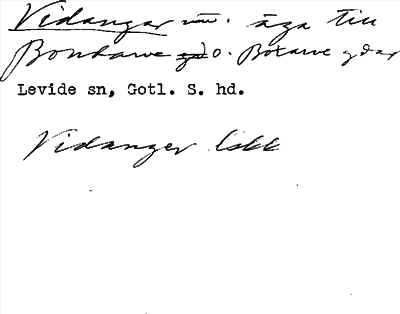 Vidangar äga till
Bonharve o. Botarve gdar
Levide sn, Gotl. S. hd.
Vidanger